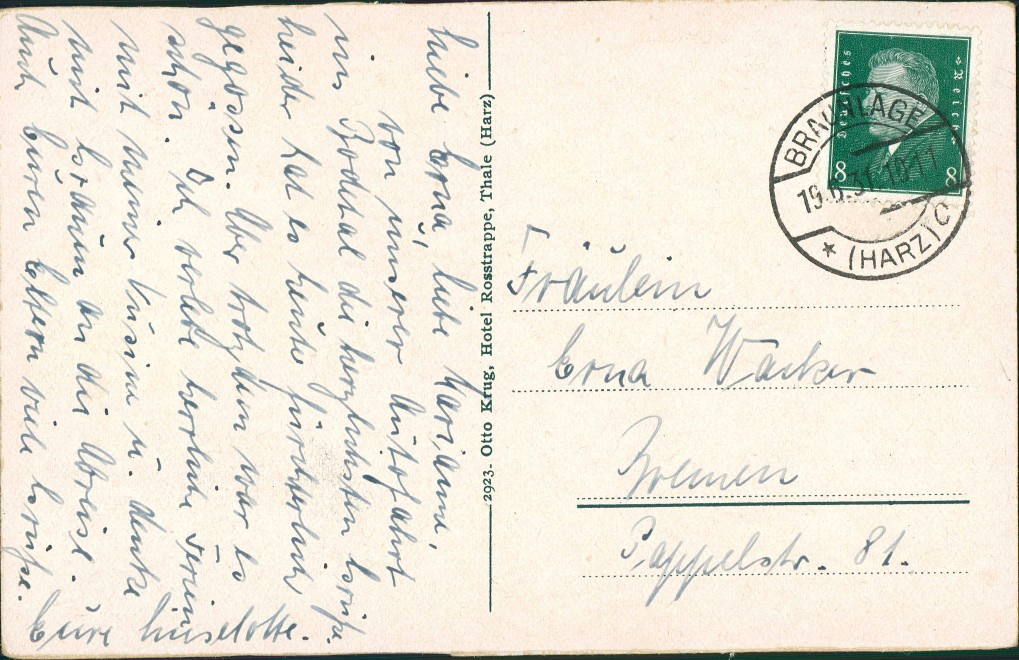 Liebe Erna, liebe Marianne,
von unserer Autofahrt
ins Bodetal die herzlichsten Grüße.
Leider hat es heute fürchterlich
gegossen. Aber trotzdem war es
schön. Ich verlebe herrliche Ferien
mit meiner Kusine u. denke
mit Grauen an die Abreise.
Auch Euren Eltern viele Grüße.
Eure Lieselotte.
2923. Otto Krug, Hotel Rosstrappe, Thale (Harz)
Deutsches Reich
8 8
BRAUNLAGE
19.6.31. 10-11
* (HARZ) C
Fräulein
Erna Wacker
Bremen
Pappelstr. 81.